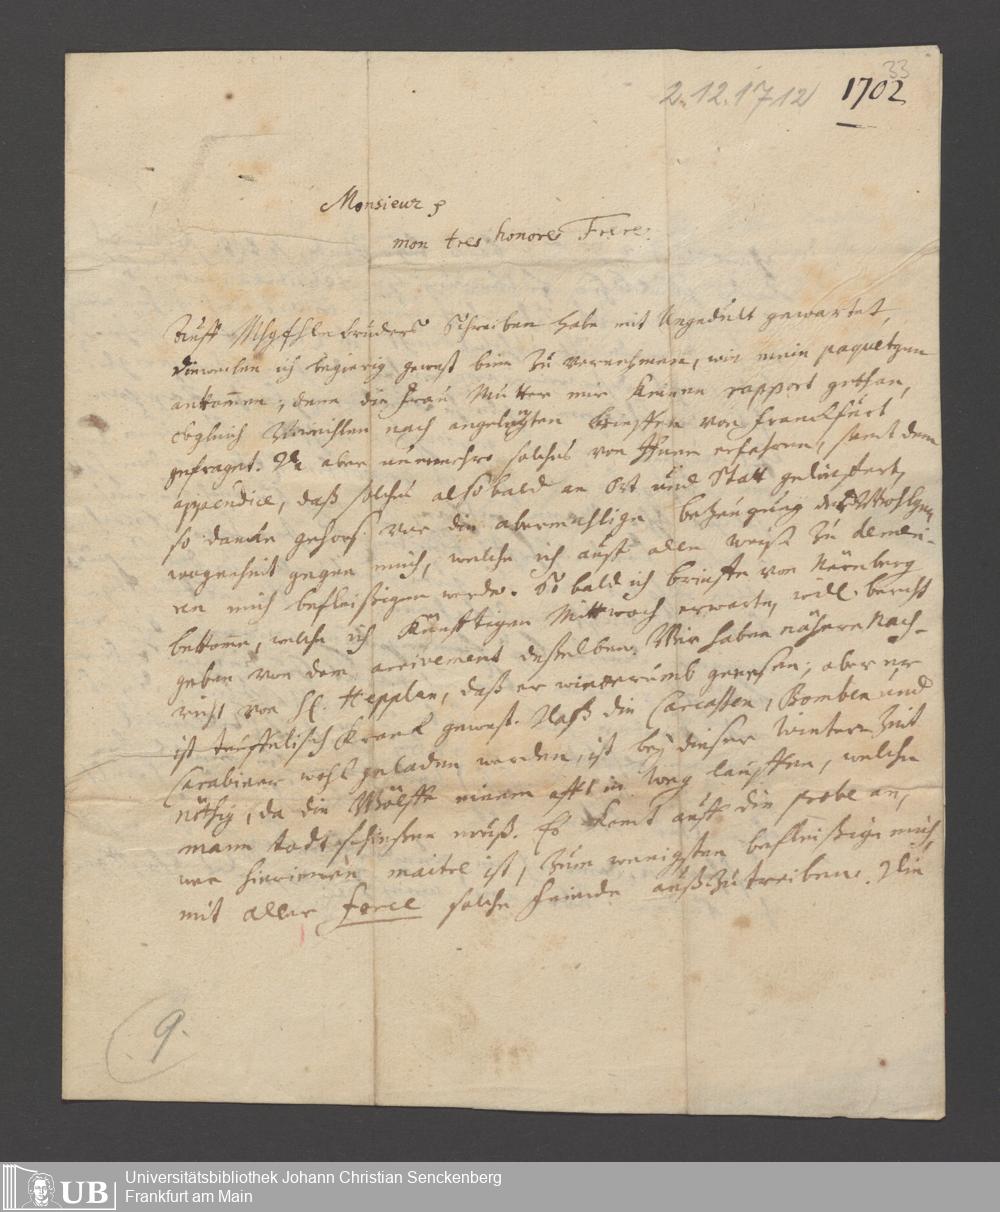 33
2.12.1712 1702
Monsieur,
mon tres honoré Frere.
Auff Bruders Schreiben habe mit Ungedult gewartet,
dieweilen ich begierig gewest bin zu vernehmen, wie mein paquetgen
ankom̄en; denn die Frau Mutter mir keinen rapport gethan,
obgleich zuweilen nach angelegten brieffen von Franckfurt
gefraget. Da aber nunmehro solches von Ihnen erfahren, samt dem
appendice, daß solches alsobald an Ort und Statt gelieffert,
so dancke gehors. vor die abermahlige bezeugung der Wohlgewogenheit
gegen mich, welche ich auff alle weise zu
mich befleissigen werde. So bald ich brieffe von Nürnberg
bekom̄e, welche ich künfftigen Mittwoch erwarte, will bericht
geben von dem arrivement desselben. Wir haben nähere Nach-
richt von H. Hepplen, daß er wiederumb genesen; aber er
ist teuffelisch kranck gewest. Daß die Carcassen, Bomben und
Carabiner wohl geladen werden, ist bey dieser Winters Zeit
nöthig, da die Wölffe einem offt in weg lauffen, welche
mann todt schiessen muß. Es komt auff die probe an,
wer hierinnen maitre ist, zum wenigsten befleissige mich,
mit aller force solche Feinde außzutreiben. Die
9.
Universitätsbibliothek Johann Christian Senckenberg
Frankfurt am Main
UB